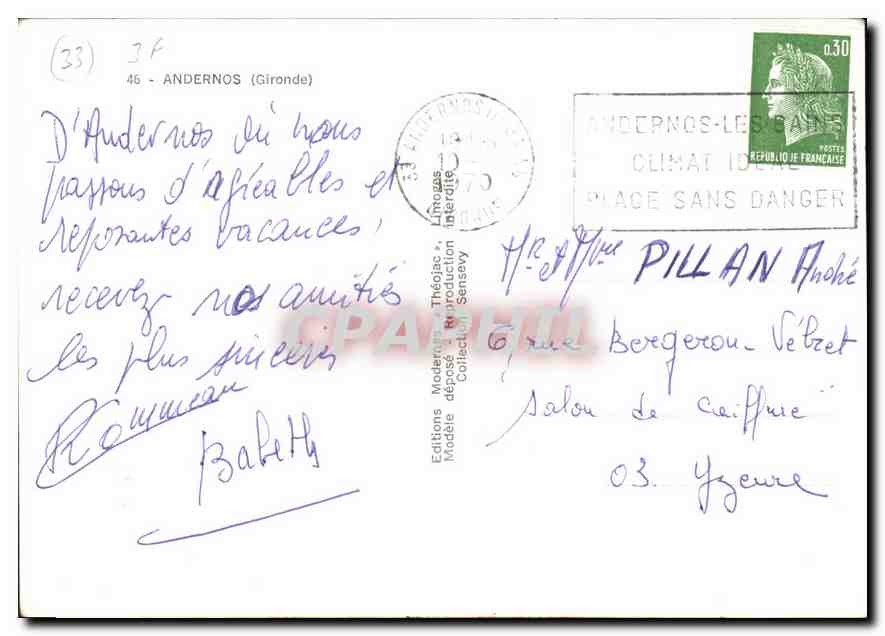 (33) 3F
46 - ANDERNOS (Gironde)
D'Andernos où nous
passons d'agréables et
reposantes vacances,
recevez nos amitiés
les plus sincères
Babeth
Editions Modernes « Théojac », Limoges
Modèle déposé - Reproduction interdite
Collection Sensevy
33 ANDERNOS
GIRONDE
ANDERNOS-LES-BAINS
CLIMAT IDEAL
PLAGE SANS DANGER
0,30
POSTES
REPUBLIQUE FRANCAISE
Mr et Mme PILLAN André
6, rue Bergeron-Vébret
Salon de coiffure
03. Yzeure
CPAPHIL